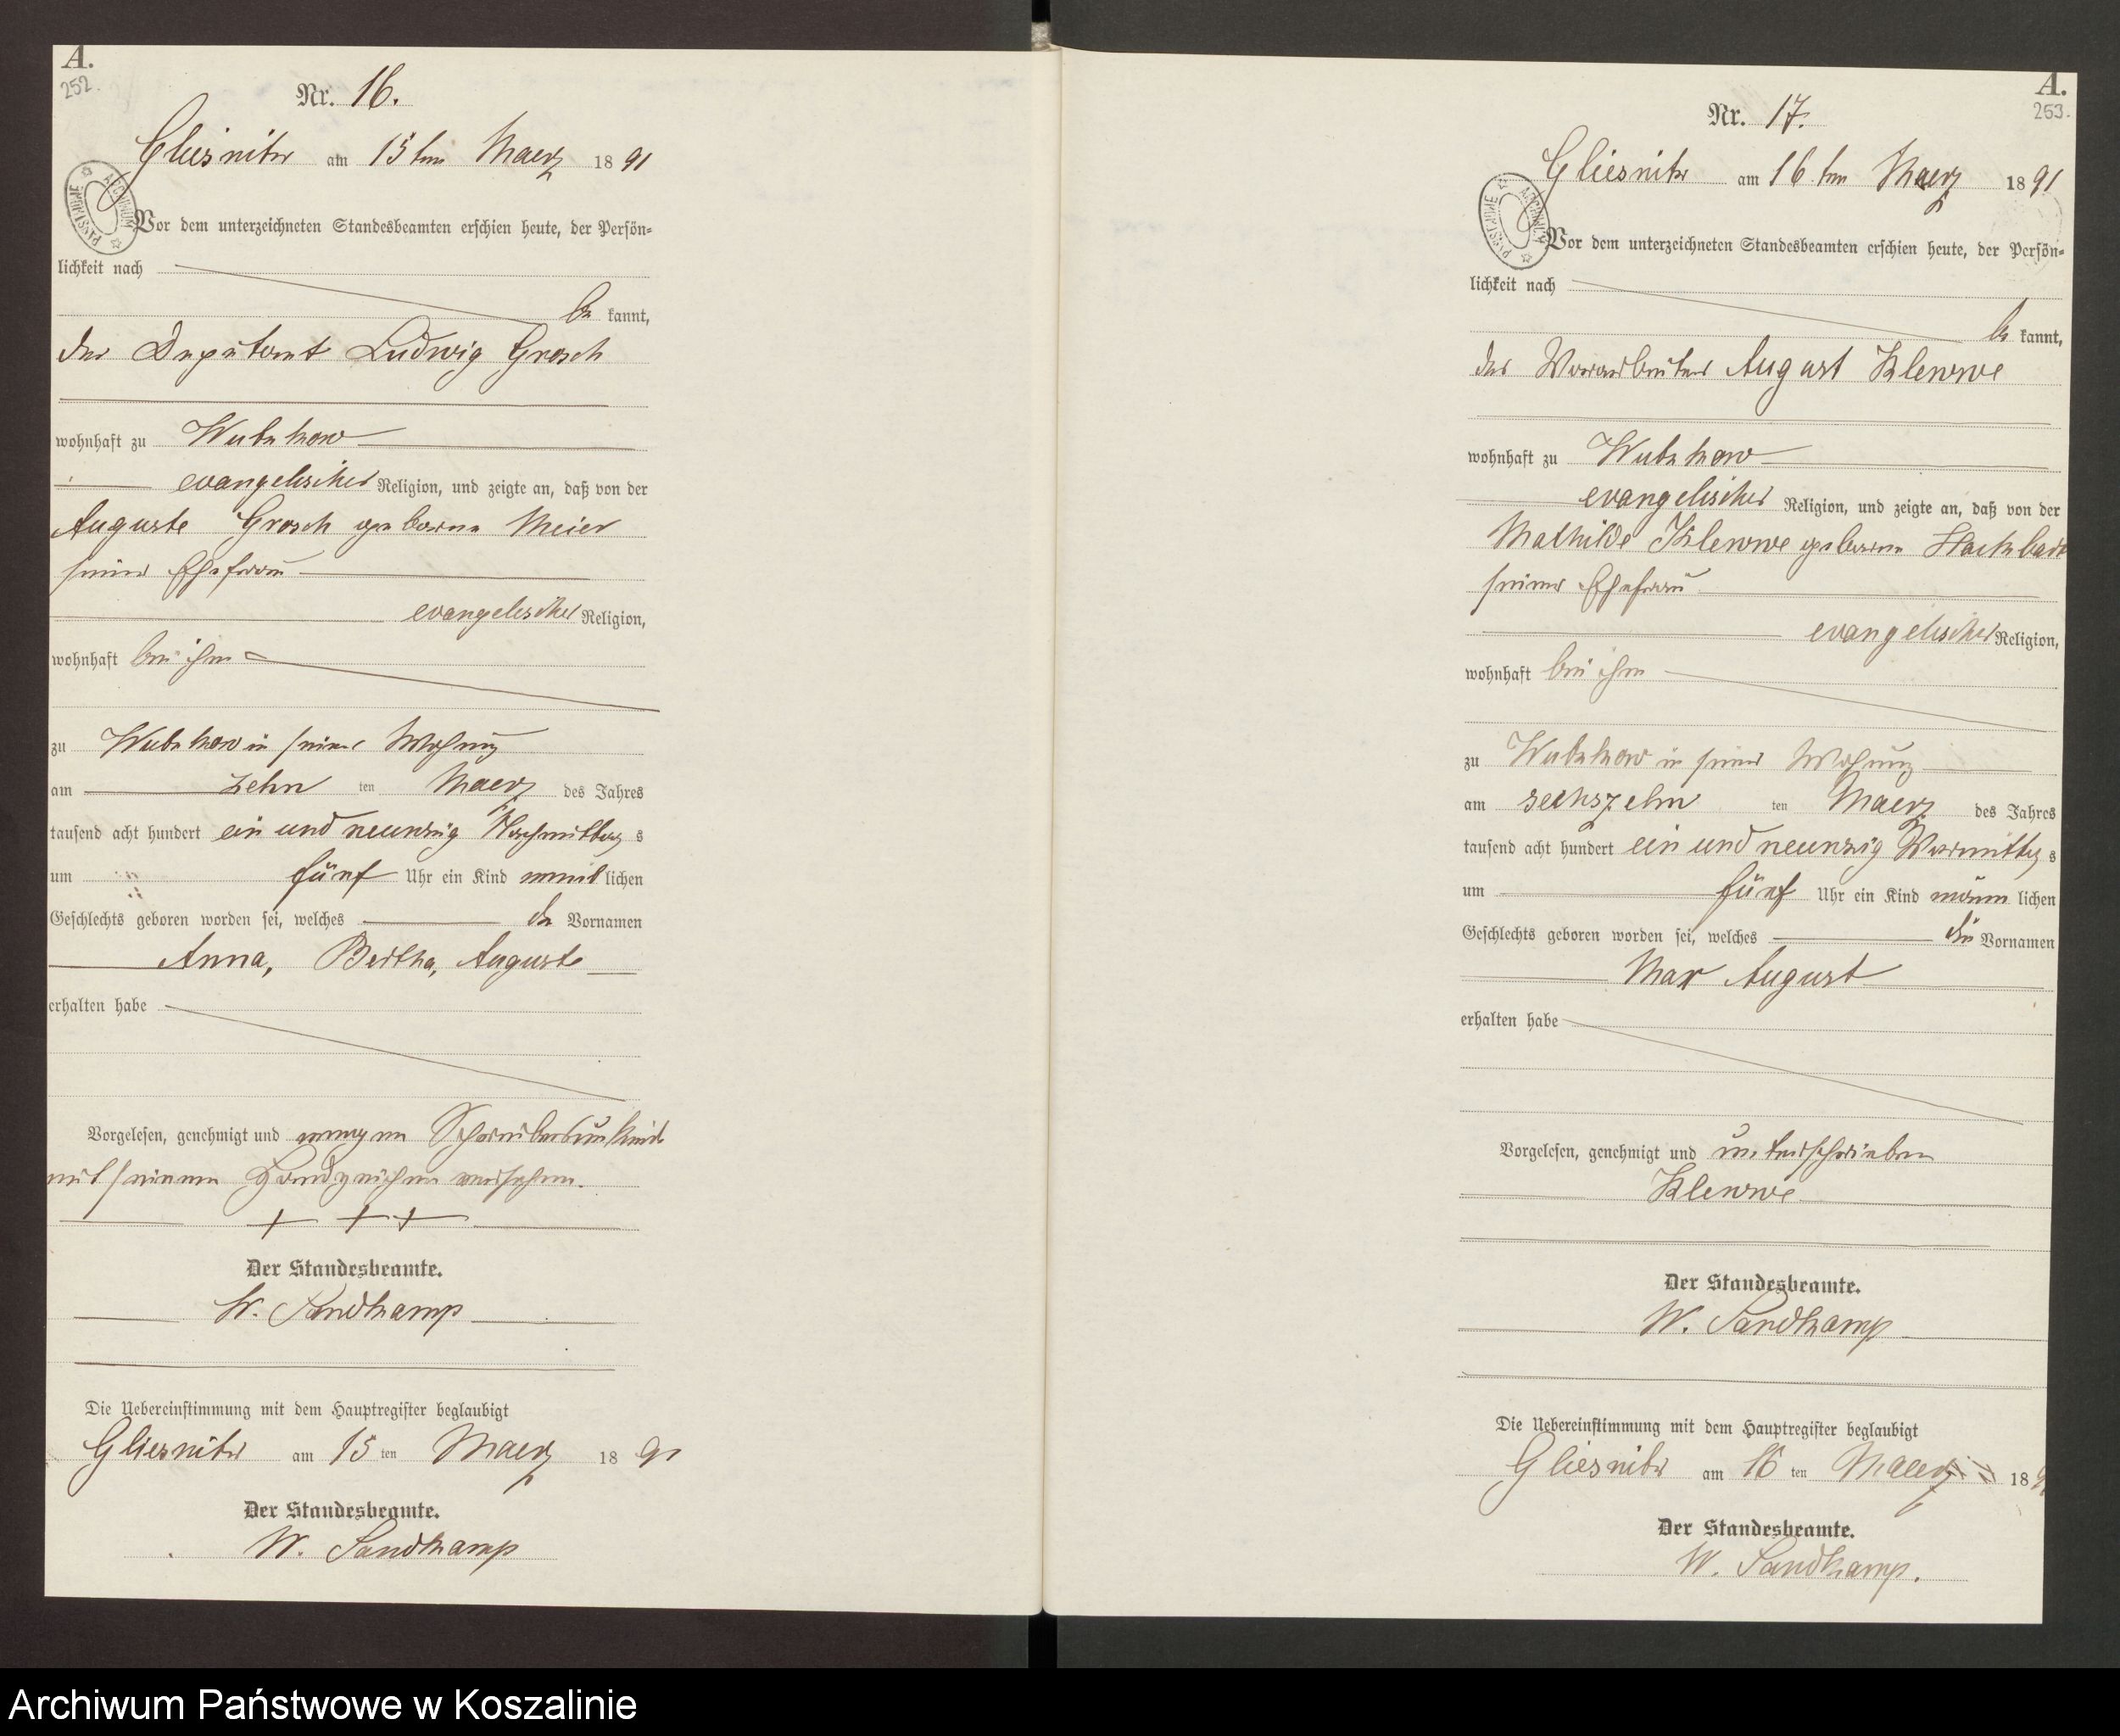 A.
252.
Nr. 16.
Gliesnitz am 15ten Maerz 1891
Vor dem unterzeichneten Standesbeamten erschien heute, der Persön-
lichkeit nach
be kannt,
der Deputant Ludwig Grosch
wohnhaft zu Wutzkow
evangelischer Religion, und zeigte an, daß von der
Auguste Grosch geborne Meier
seiner Ehefrau
evangelischer Religion,
wohnhaft bei ihm
zu Wutzkow in seiner Wohnung
am zehn ten Maerz des Jahres
tausend acht hundert ein und neunzig Nachmittag s
um fünf Uhr ein Kind weib lichen
Geschlechts geboren worden sei, welches die Vornamen
Anna, Bertha, Auguste
erhalten habe
Vorgelesen, genehmigt und wegen Schreibensunkunde
mit seinem Handzeichen versehen.
+ + +
Der Standesbeamte.
W. Sandkamp
Die Uebereinstimmung mit dem Hauptregister beglaubigt
Gliesnitz am 15 ten Maerz 1891
Der Standesbeamte.
W. Sandkamp
A.
253.
Nr. 17.
Gliesnitz am 16ten Maerz 1891
Vor dem unterzeichneten Standesbeamten erschien heute, der Persön-
lichkeit nach
be kannt,
der Vorarbeiter August Klewwe
wohnhaft zu Wutzkow
evangelischer Religion, und zeigte an, daß von der
Mathilde Klewwe geborne Hackbart
seiner Ehefrau
evangelischer Religion,
wohnhaft bei ihm
zu Wutzkow in seiner Wohnung
am sechszehn ten Maerz des Jahres
tausend acht hundert ein und neunzig Vormittag s
um fünf Uhr ein Kind männ lichen
Geschlechts geboren worden sei, welches die Vornamen
Max August
erhalten habe
Vorgelesen, genehmigt und unterschrieben
Klewwe
Der Standesbeamte.
W. Sandkamp
Die Uebereinstimmung mit dem Hauptregister beglaubigt
Gliesnitz am 16 ten Maerz 189
Der Standesbeamte.
W. Sandkamp.
ARCHIWUM PAŃSTWOWE
ARCHIWUM PAŃSTWOWE
Archiwum Państwowe w Koszalinie